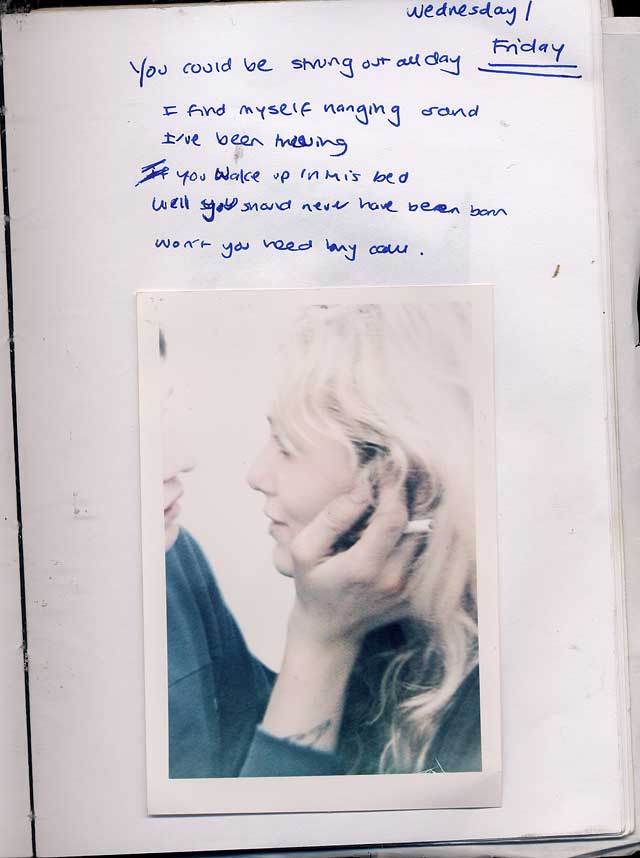 Wednesday /
Friday
You could be strung out all day
I find myself hanging round
I've been
you wake up in his bed
well you should never have been born
won't you need my